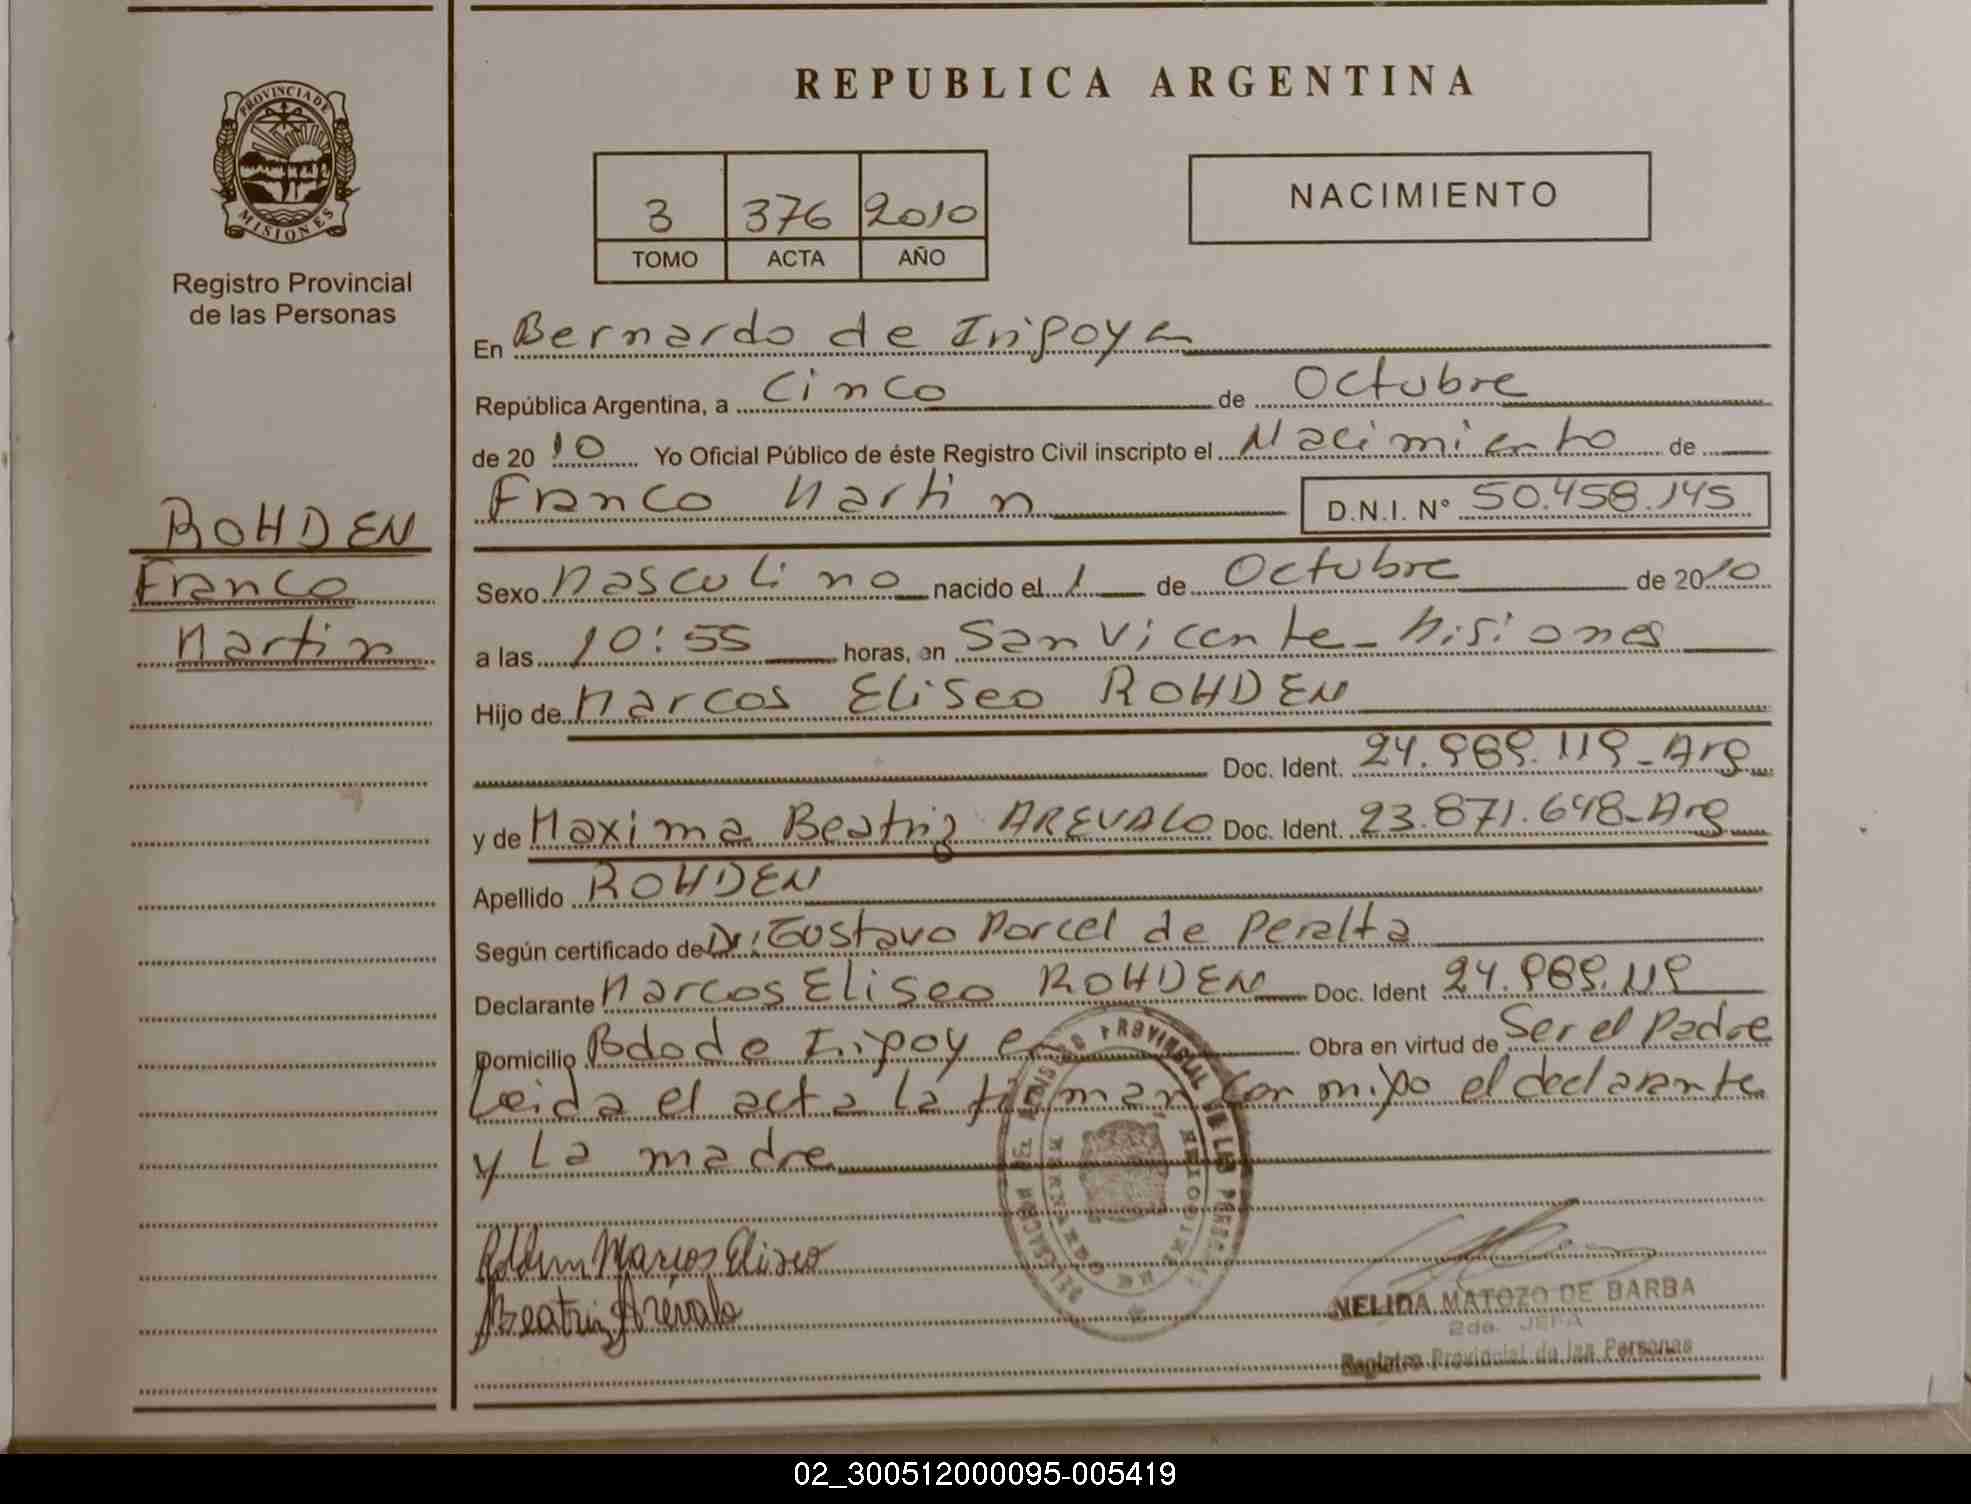 PROVINCIA DE
MISIONES
Registro Provincial
de las Personas
ROHDEN
Franco
Martin
REPUBLICA ARGENTINA
3 376 2010
TOMO ACTA AÑO
NACIMIENTO
En Bernardo de Iripoyen
República Argentina, a Cinco de Octubre
de 2010 Yo Oficial Público de éste Registro Civil inscripto el Nacimiento de
Franco Martin D.N.I. N° 50.458.145
Sexo Masculino nacido el 1 de Octubre de 2010
a las 10:55 horas, en San Vicente - Misiones
Hijo de Marcos Eliseo ROHDEN
Doc. Ident. 24.989.119 - Arg
y de Maxima Beatriz AREVALO Doc. Ident. 23.871.648 - Arg
Apellido ROHDEN
Según certificado de Dr: Gustavo Porcel de Peralta
Declarante Marcos Eliseo ROHDEN Doc. Ident 24.989.119
Domicilio Bdo de Iripoyen Obra en virtud de Ser el Padre
Leida el acta la firman con migo el declarante
y La madre
Rohden Marcos Eliseo
Beatriz Arévalo
NELIDA MATOZO DE BARBA
2da. JEFA
Registro Provincial de las Personas
02_300512000095-005419